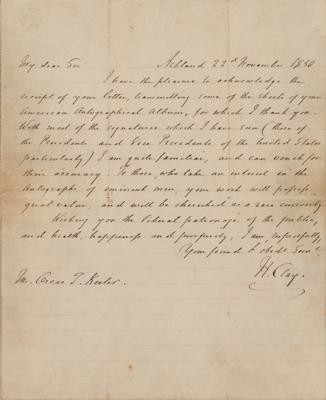 My dear Sir
Ashland 22d November 1850
I have the pleasure to acknowledge the
receipt of your letter, transmitting some of the sheets of your
American Autographical Album, for which I thank you.
With most of the signatures which I have seen (those of
the Presidents and Vice Presidents of the United States
particularly) I am quite familiar, and can vouch for
their accuracy. To those, who take an interest in the
Autographs of eminent men, your work will possess
great value, and will be cherished as a rare curiosity
Wishing you the liberal patronage of the public,
and health, happiness and prosperity, I am, respectfully,
Your friend & obedt Servt
H. Clay.
Mr. Oscar T. Keeler.